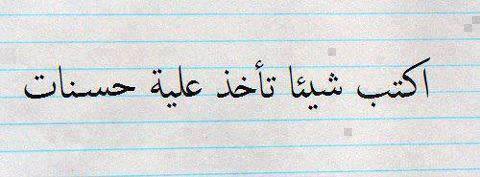 اكتب شيئا تأخذ علية حسنات